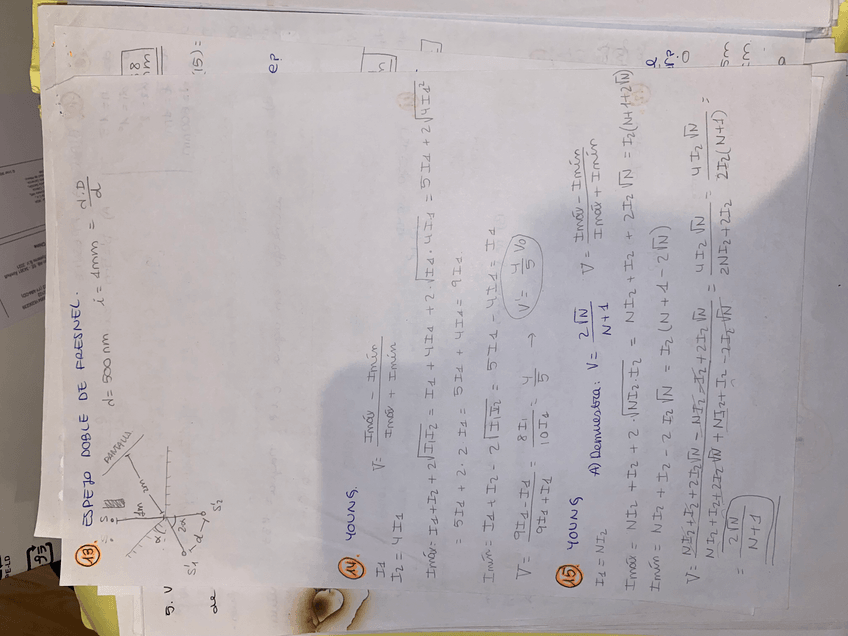 13. ESPEJO DOBLE DE FRESNEL.
d=500nm i=1mm = d.D/d
S
PANTALLA
1m
2m
α
2α
S'1
d
S'2
14. YOUNG.
I1
I2 = 4I1
V = (Imáx - Imín)/(Imáx + Imín)
Imáx = I1 + I2 + 2√I1I2 = I1 + 4I1 + 2·√I1·4I1 = 5I1 + 2√4I1²
= 5I1 + 2·2I1 = 5I1 + 4I1 = 9I1
Imín = I1 + I2 - 2√I1I2 = 5I1 - 4I1 = I1
V = (9I1 - I1)/(9I1 + I1) = 8I1/10I1 = 4/5 → V' = 4/5 V0
15. YOUNG
I1 = NI2
A) Demuestra: V = 2√N/(N+1)
V = (Imáx - Imín)/(Imáx + Imín)
Imáx = NI2 + I2 + 2·√NI2·I2 = NI2 + I2 + 2I2√N = I2(N+1+2√N)
Imín = NI2 + I2 - 2I2√N = I2(N+1-2√N)
V = (NI2 + I2 + 2I2√N - NI2 - I2 + 2I2√N)/(NI2 + I2 + 2I2√N + NI2 + I2 - 2I2√N) = 4I2√N/(2NI2 + 2I2) = 4I2√N/(2I2(N+1)) =
= 2√N/(N+1)
5. V
de